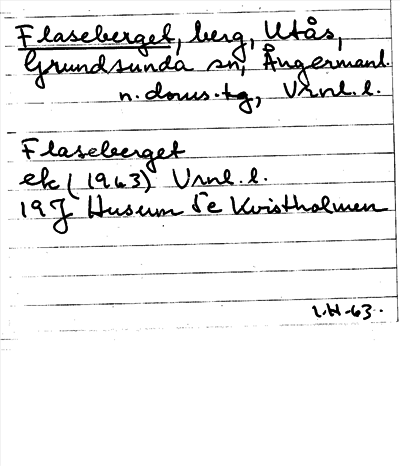 Flaseberget, berg, Utås,
Grundsunda sn, Ångermanl.
n. doms. tg, Vrnl. l.
Flaseberget
ek (1963) Vrnl. l.
19J Husum Se Kvistholmen
L.H-63.